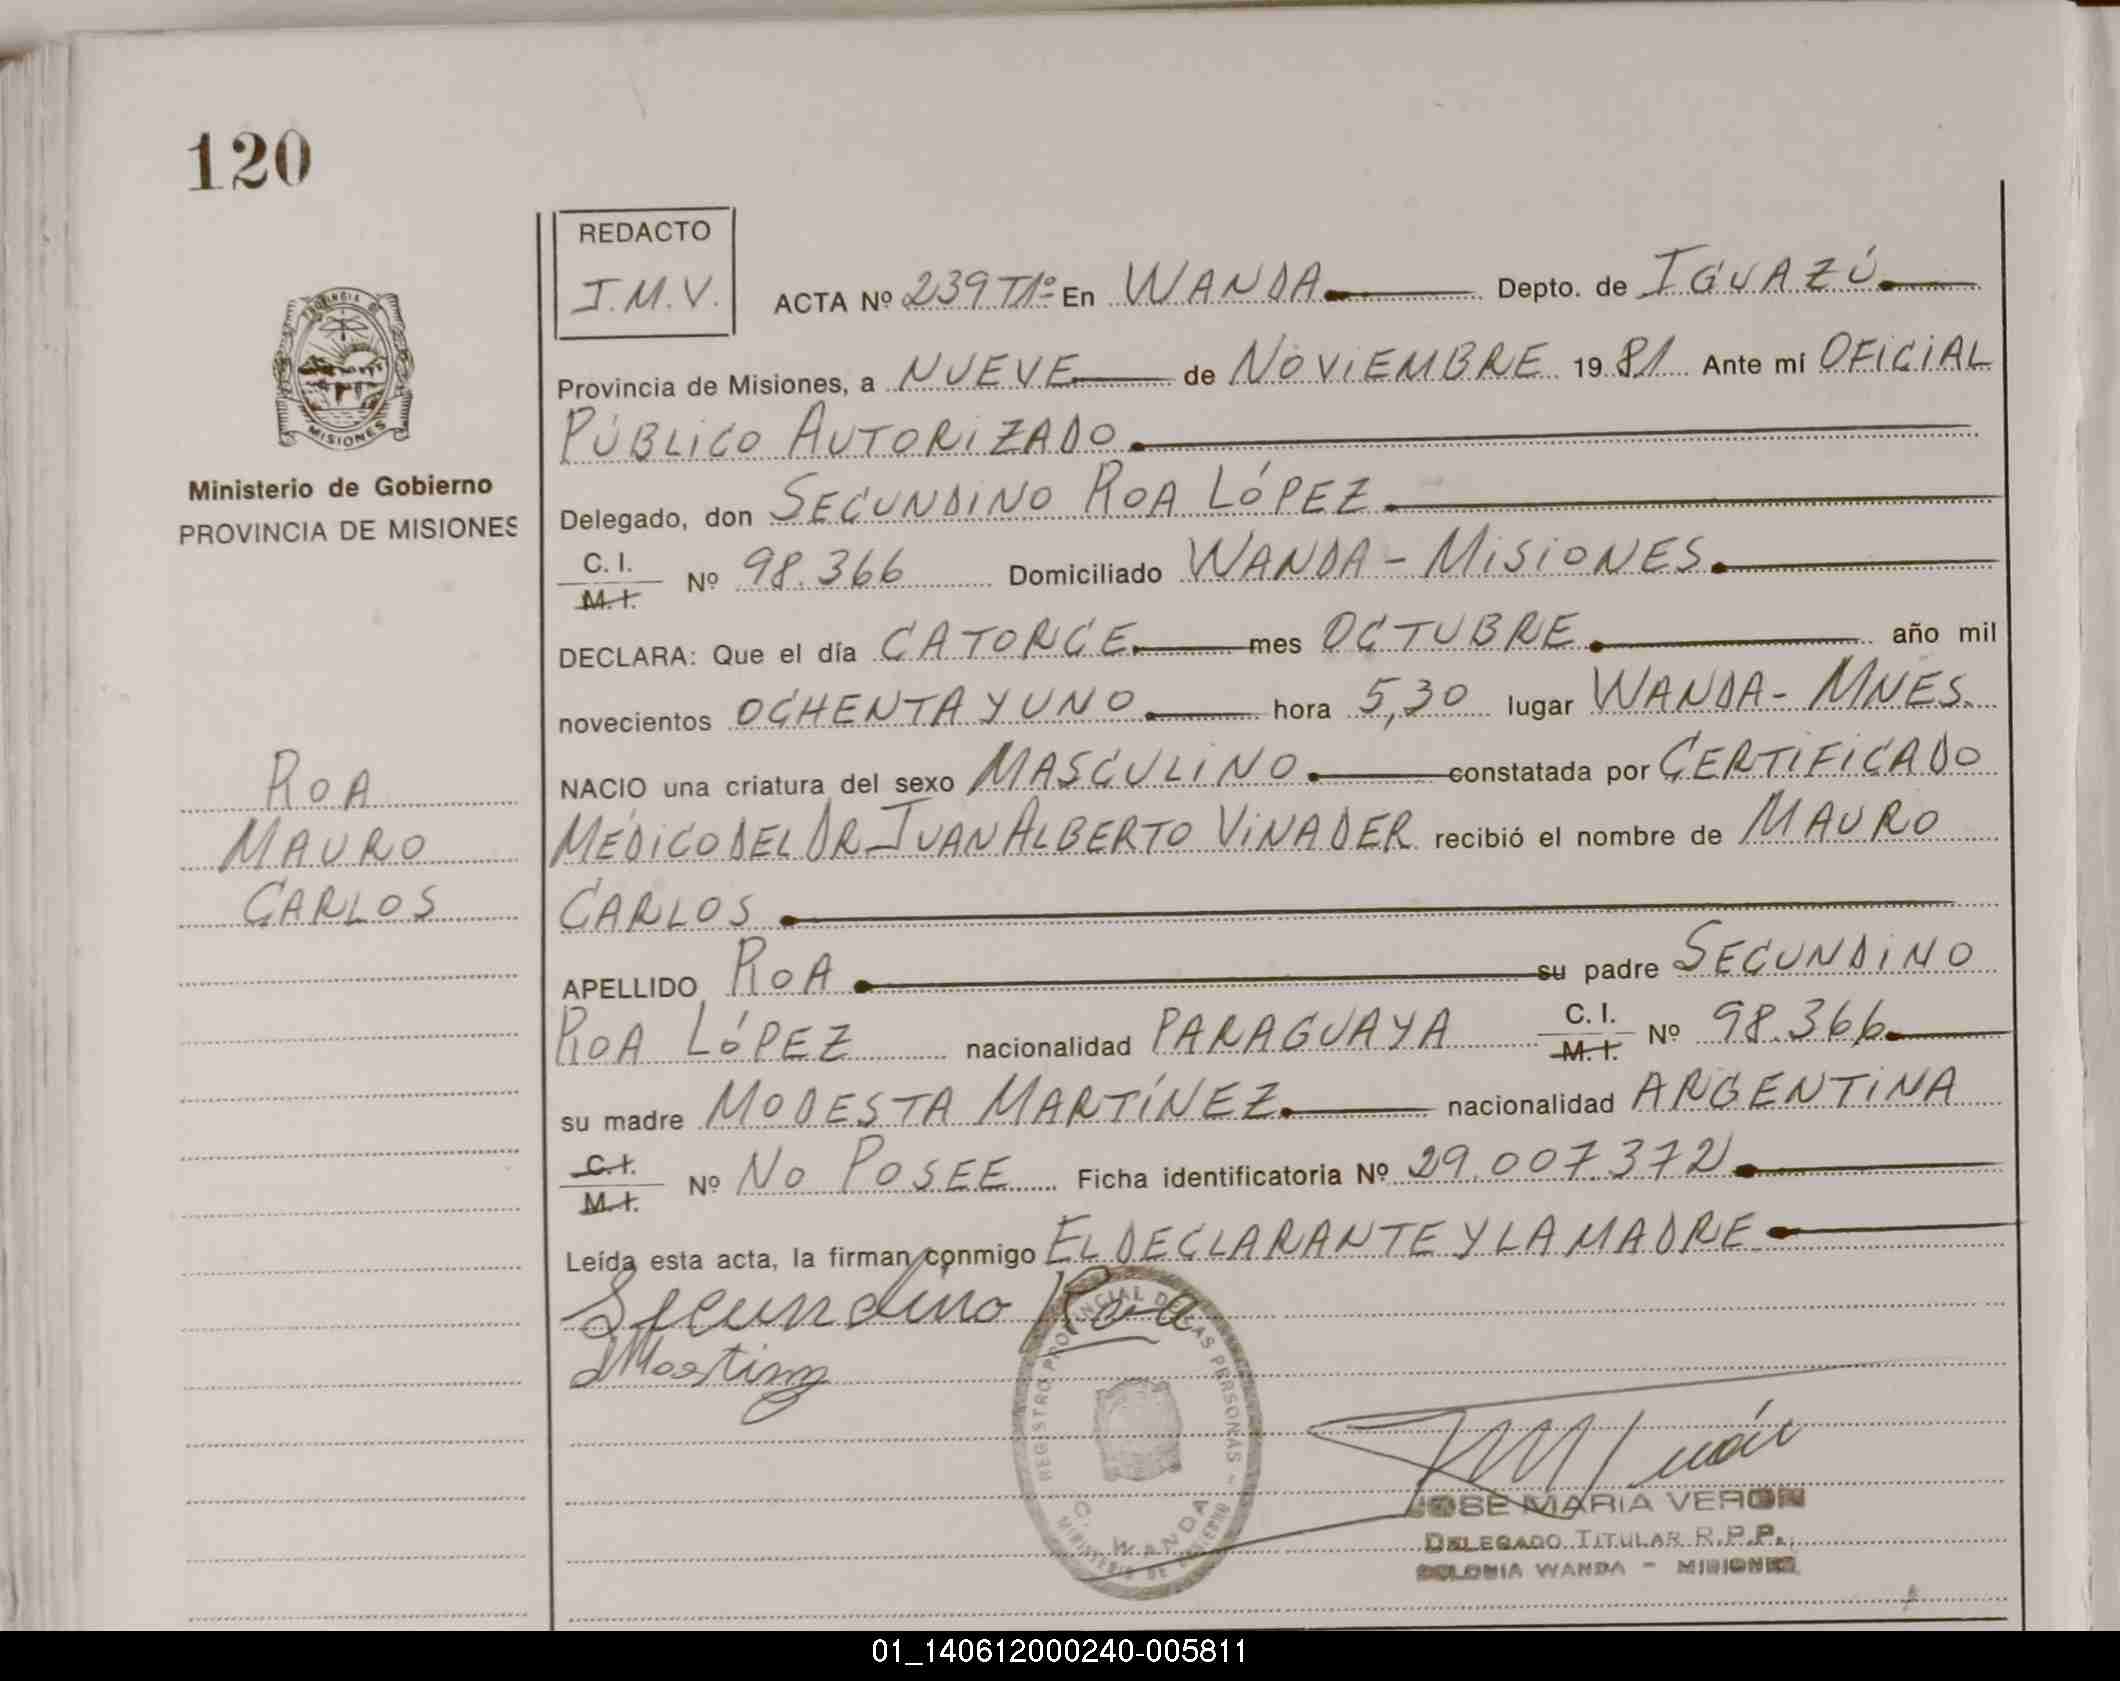 120
PROVINCIA DE
MISIONES
Ministerio de Gobierno
PROVINCIA DE MISIONES
ROA
MAURO
CARLOS
REDACTO
J.M.V.
ACTA Nº 239 T1º En WANDA Depto. de IGUAZÚ
Provincia de Misiones, a NUEVE de NOVIEMBRE 1981 Ante mí OFICIAL
PÚBLICO AUTORIZADO
Delegado, don SECUNDINO ROA LÓPEZ
C. I.
M. I. Nº 98.366 Domiciliado WANDA - MISIONES
DECLARA: Que el día CATORCE mes OCTUBRE año mil
novecientos OCHENTA Y UNO hora 5,30 lugar WANDA - MNES.
NACIO una criatura del sexo MASCULINO constatada por CERTIFICADO
MÉDICO DEL DR. JUAN ALBERTO VINADER recibió el nombre de MAURO
CARLOS
APELLIDO ROA su padre SECUNDINO
ROA LÓPEZ nacionalidad PARAGUAYA C. I. M. I. Nº 98.366
su madre MODESTA MARTÍNEZ nacionalidad ARGENTINA
C. I.
M. I. Nº NO POSEE Ficha identificatoria Nº 29.007.372
Leída esta acta, la firman conmigo EL DECLARANTE Y LA MADRE
Secundino Roa
REGISTRO PROVINCIAL DE LAS PERSONAS -
C. WANDA
MINISTERIO DE GOBIERNO
JOSE MARIA VERON
DELEGADO TITULAR R.P.P.
COLONIA WANDA - MISIONES
01_140612000240-005811